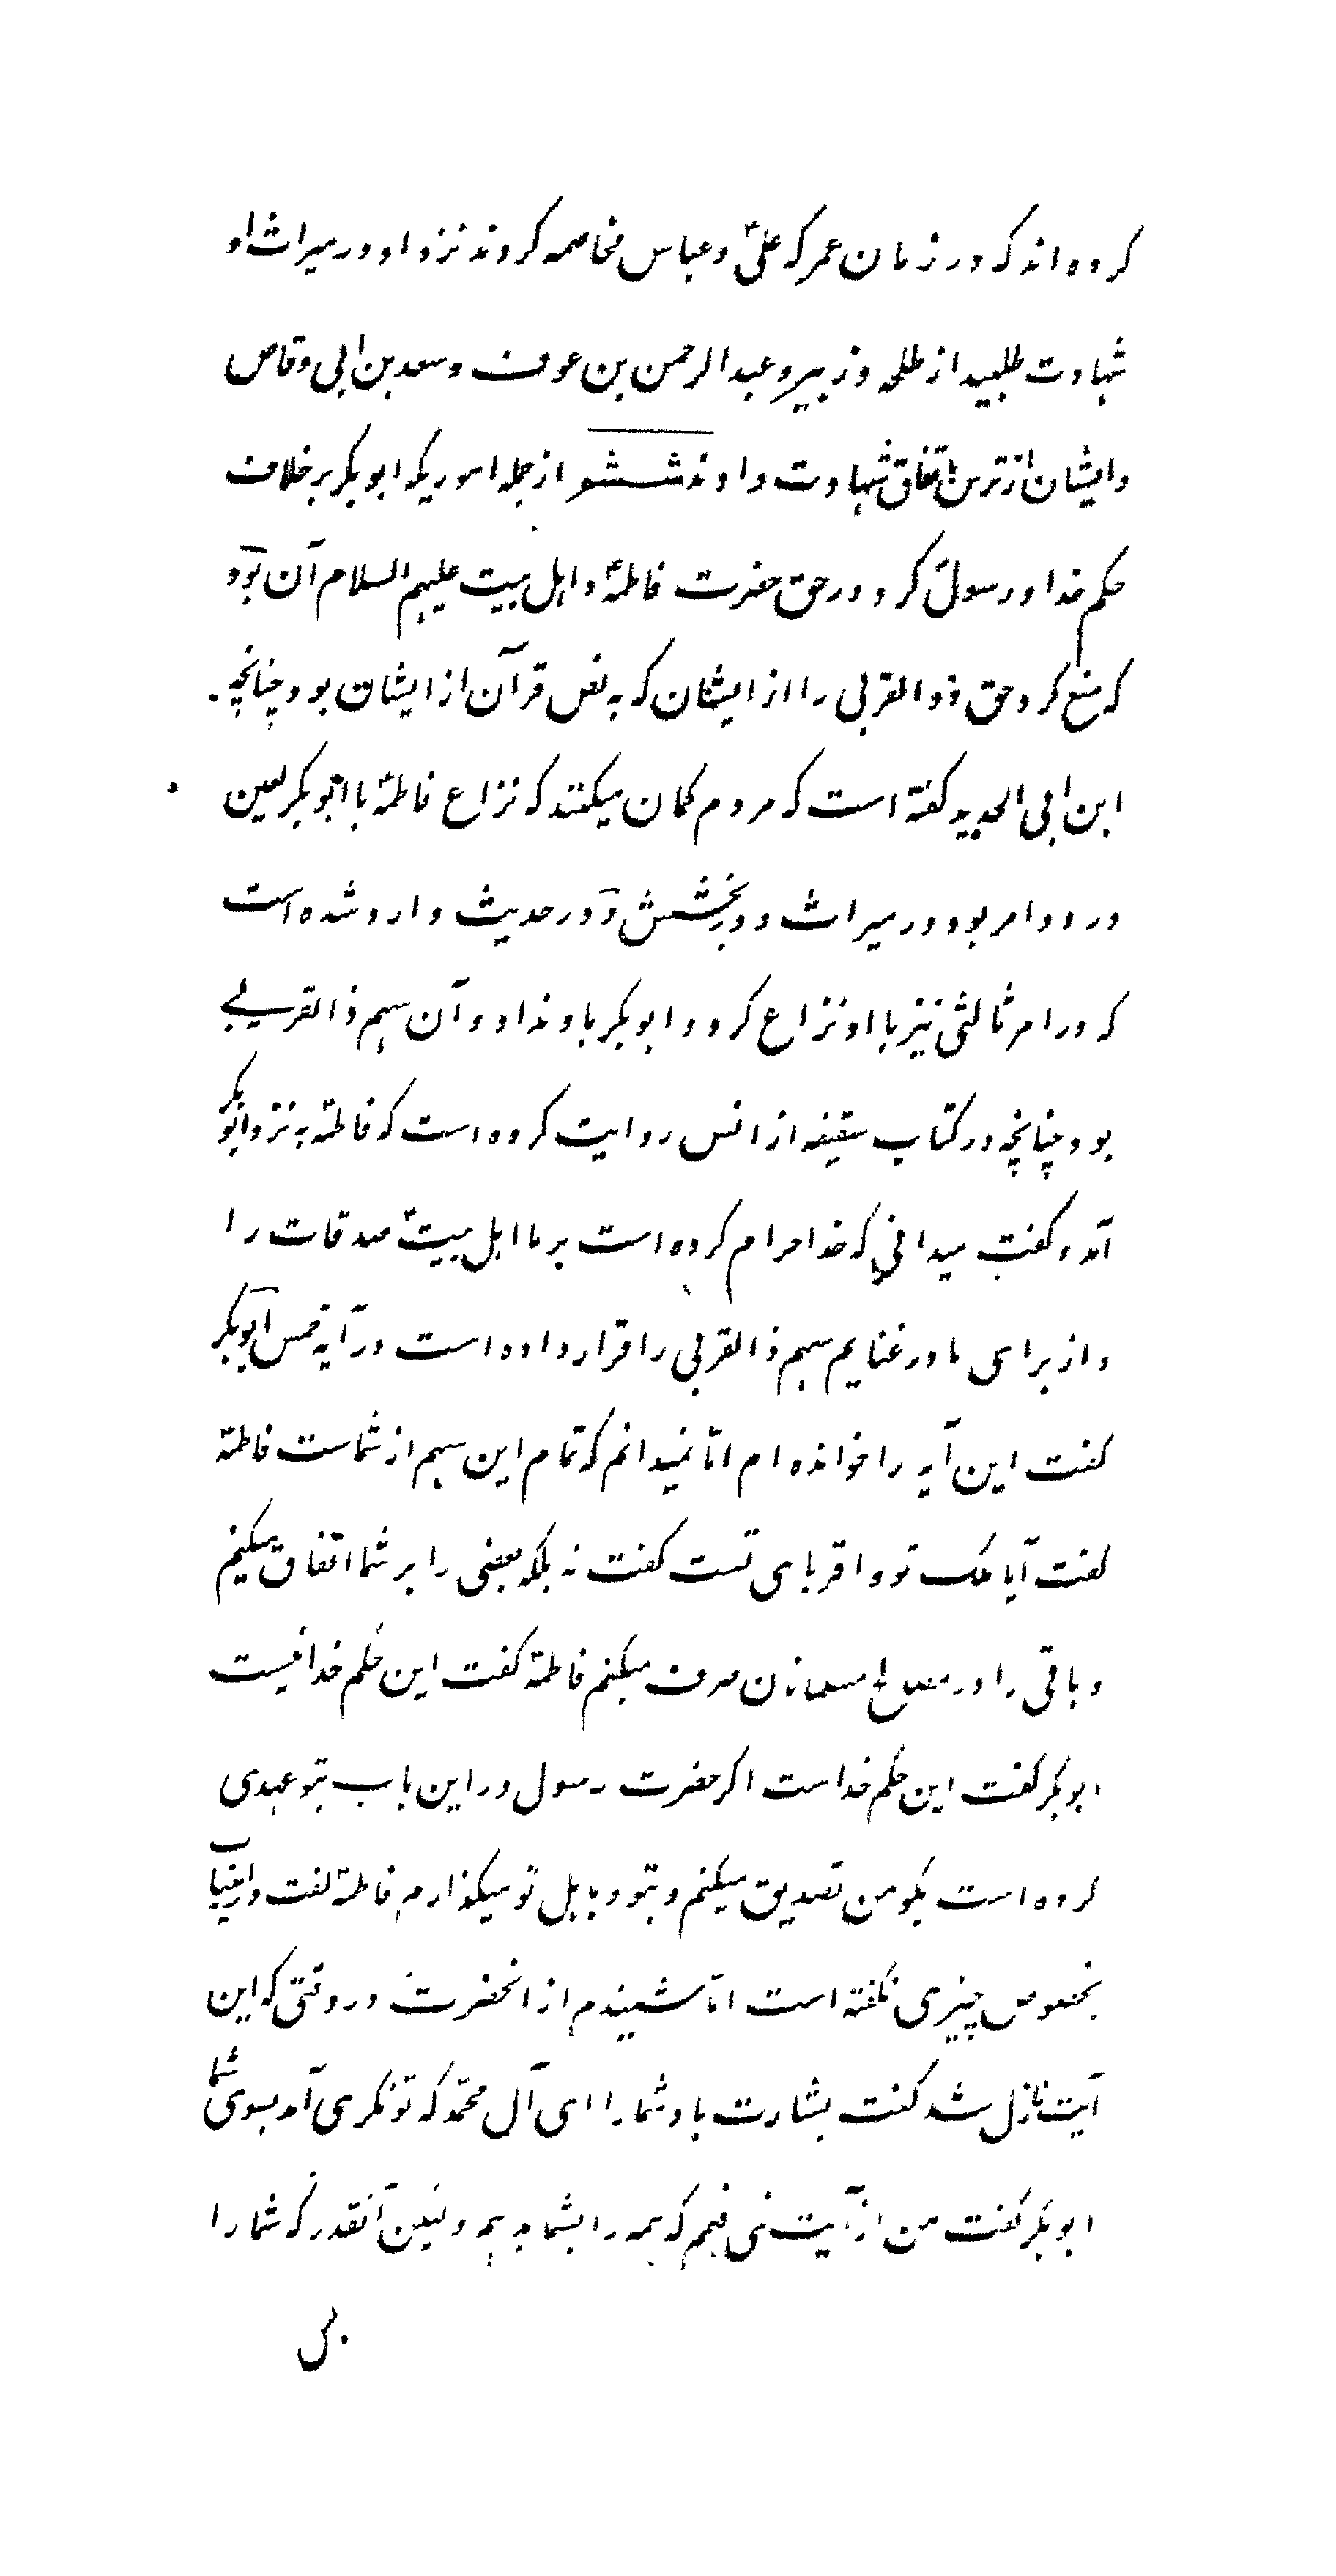 کرده‌اند که در زمان عمر که علیؑ و عباس مخاصمه کردند نزد او در میراث او
شهادت طلبید از طلحه و زبیر و عبدالرحمن بن عوف و سعد بن ابی وقاص
و ایشان از ترس باتفاق شهادت دادند ششم از جمله اموریکه ابوبکر بر خلاف
حکم خدا و رسولؐ کرد در حق حضرت فاطمهؑ و اهل بیت علیهم السلام آن بود
که منع کرد حق ذو القربی را از ایشان که به نص قرآن از ایشان بود چنانچه
ابن ابی الحدید کفته است که مردم کمان میکنند که نزاع فاطمهؑ با ابوبکر همین
در دو امر بود در میراث و در بخشش و در حدیث وارد شده است
که در امر ثالثی نیز با او نزاع کرد و ابوبکر باو نداد و آن سهم ذالقربی
بود چنانچه در کتاب سقیفه از انس روایت کرده است که فاطمهؑ به نزد ابوبکر
آمد و کفت میدانی که خدا حرام کرده است بر ما اهل بیتؑ صدقات را
و از برای ما در غنایم سهم ذالقربی را قرار داده است در آیه خمس ابوبکر
کفت این آیه را خوانده ام امّا نمیدانم که تمام این سهم از شماست فاطمهؑ
کفت آیا ملک تو و اقربای تست کفت نه بلکه بعضی را بر شما انفاق میکنیم
و باقی را در مصالح مسلمانان صرف میکنم فاطمهؑ کفت این حکم خدا نیست
ابوبکر کفت این حکم خداست اکر حضرت رسول در این باب بتو عهدی
کرده است بکو من تصدیق میکنم و بتو و باهل تو میکذارم فاطمهؑ کفت در اینباب
بخصوص چیزی نکفته است امّا شنیدم از آنحضرت در وقتی که این
آیت نازل شد کفت بشارت باد شما را ای آل محمّد که تونکری آمد بسوی شما
ابوبکر کفت من از آیت نمی فهم که همه را بشما بدهم و لیکن آنقدر که شما را